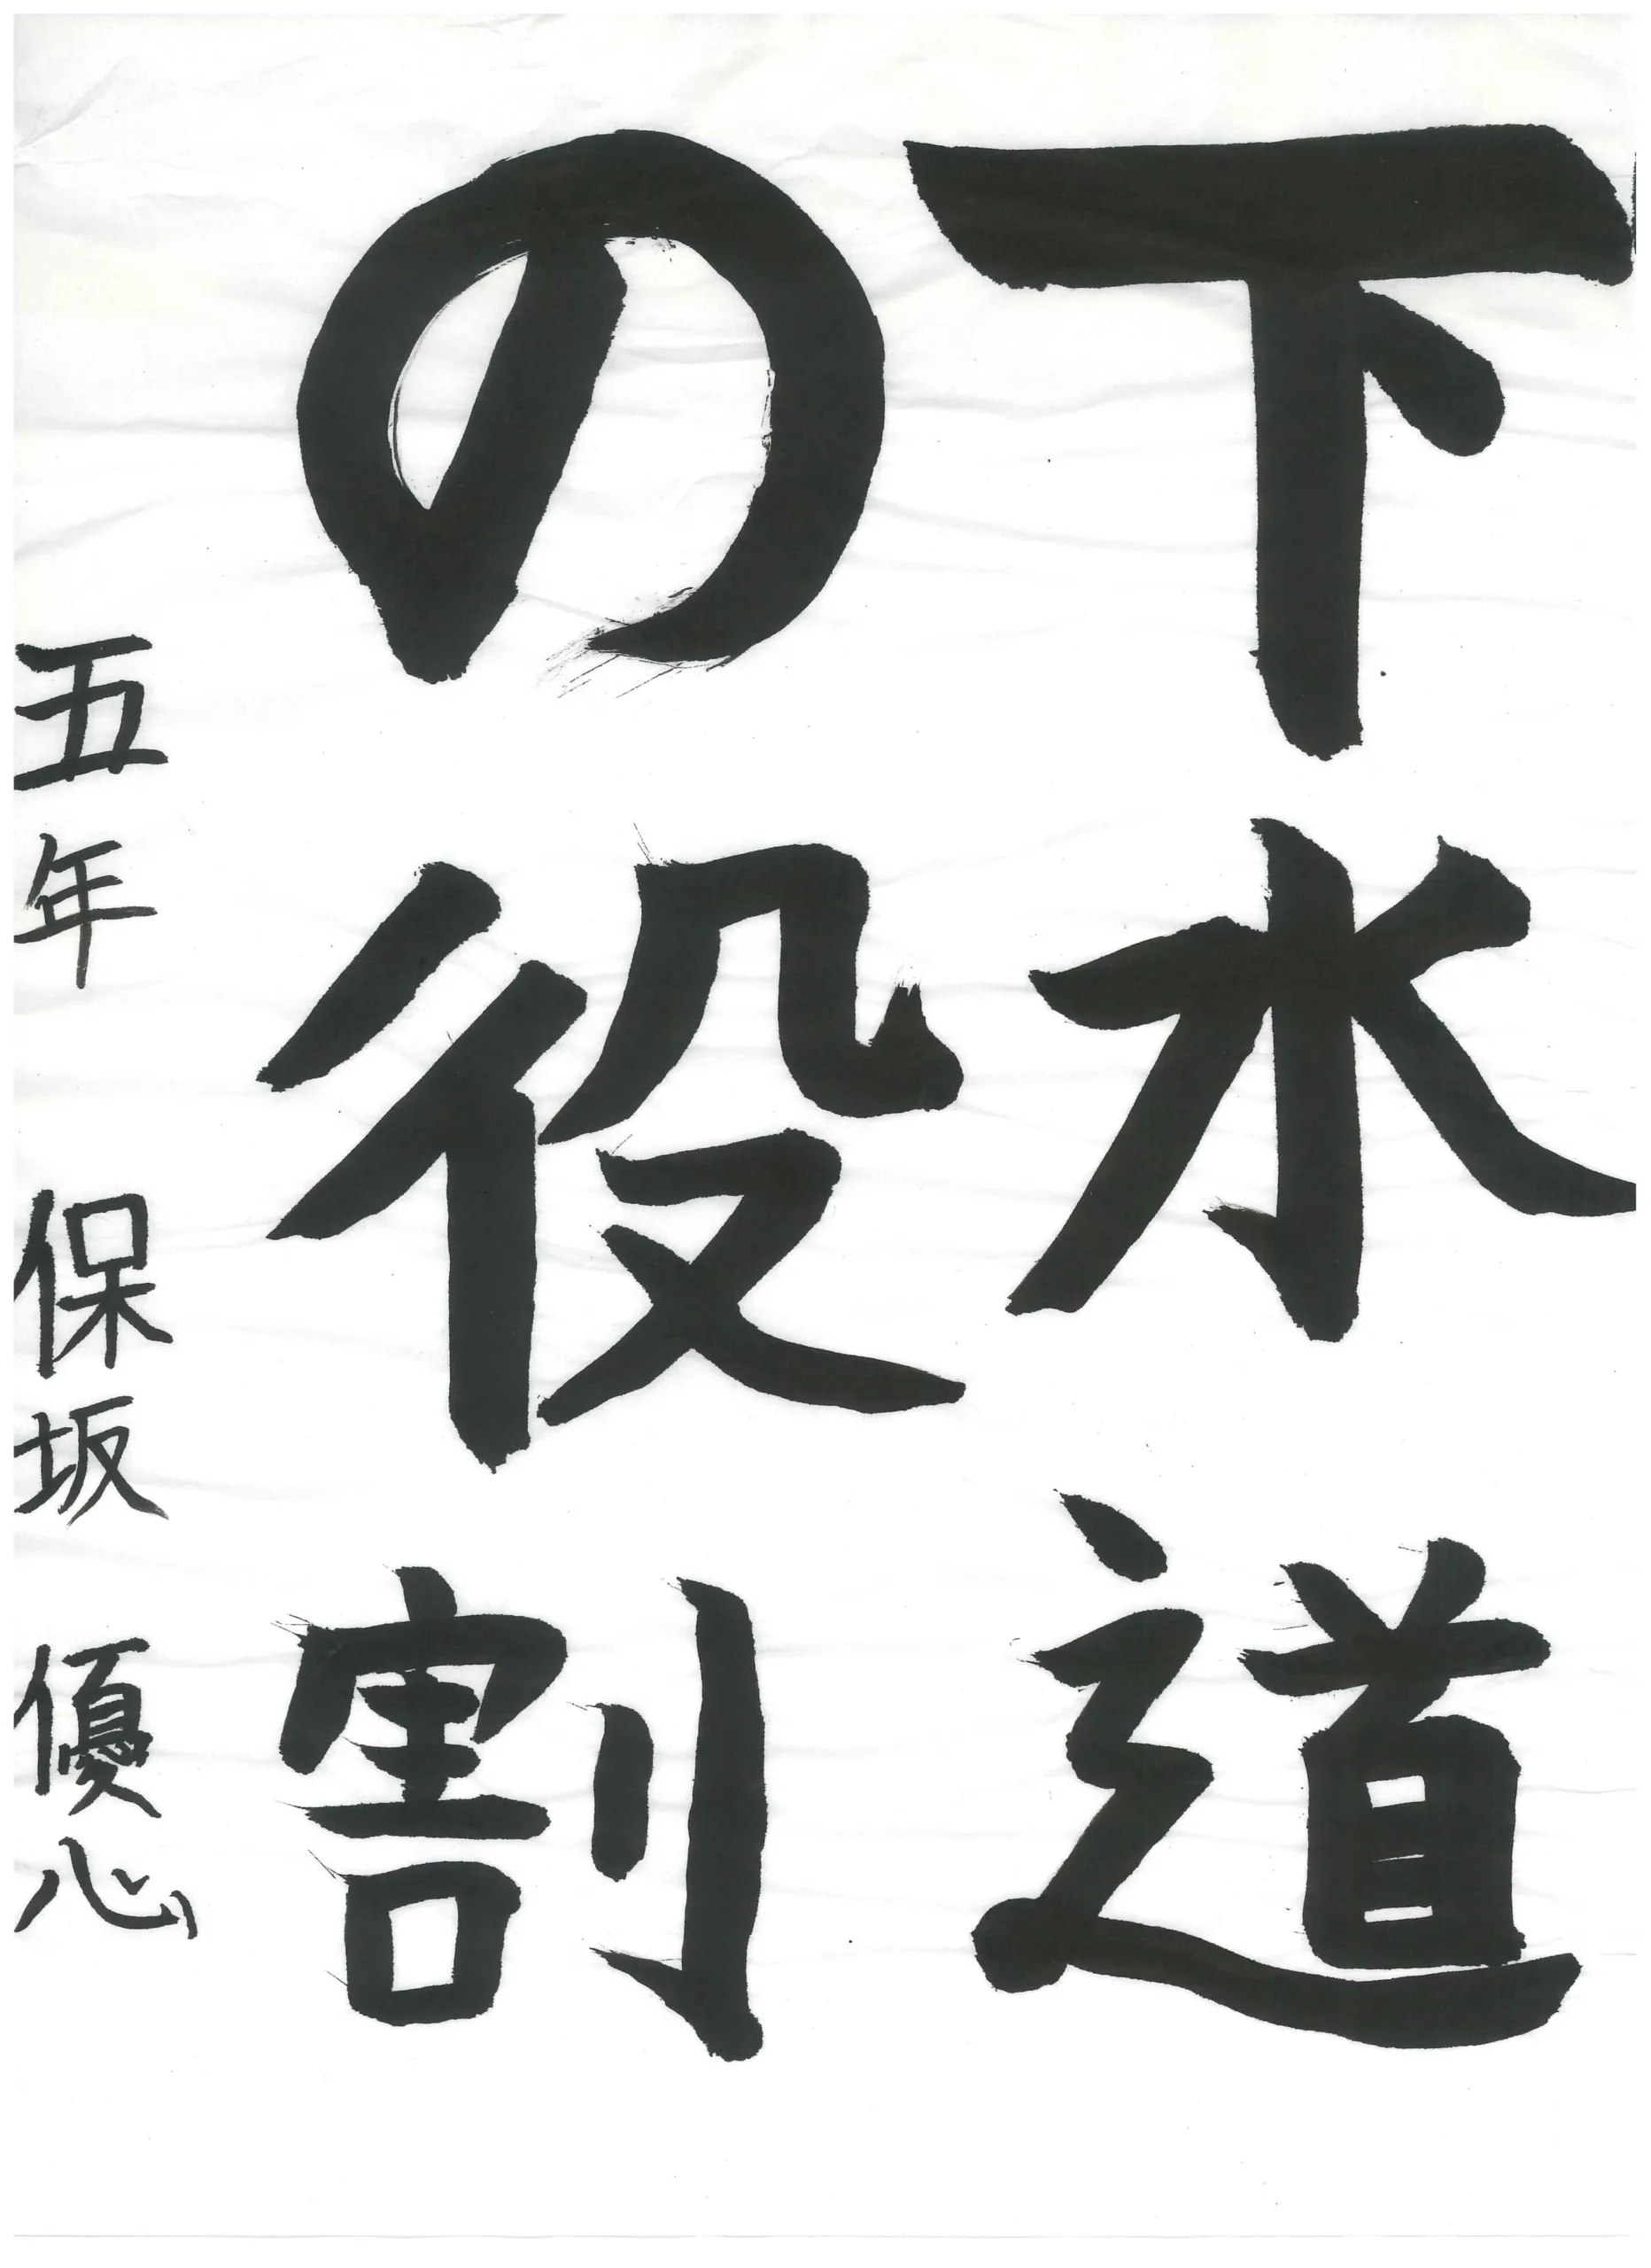 下水道
の役割
五年 保坂 優心